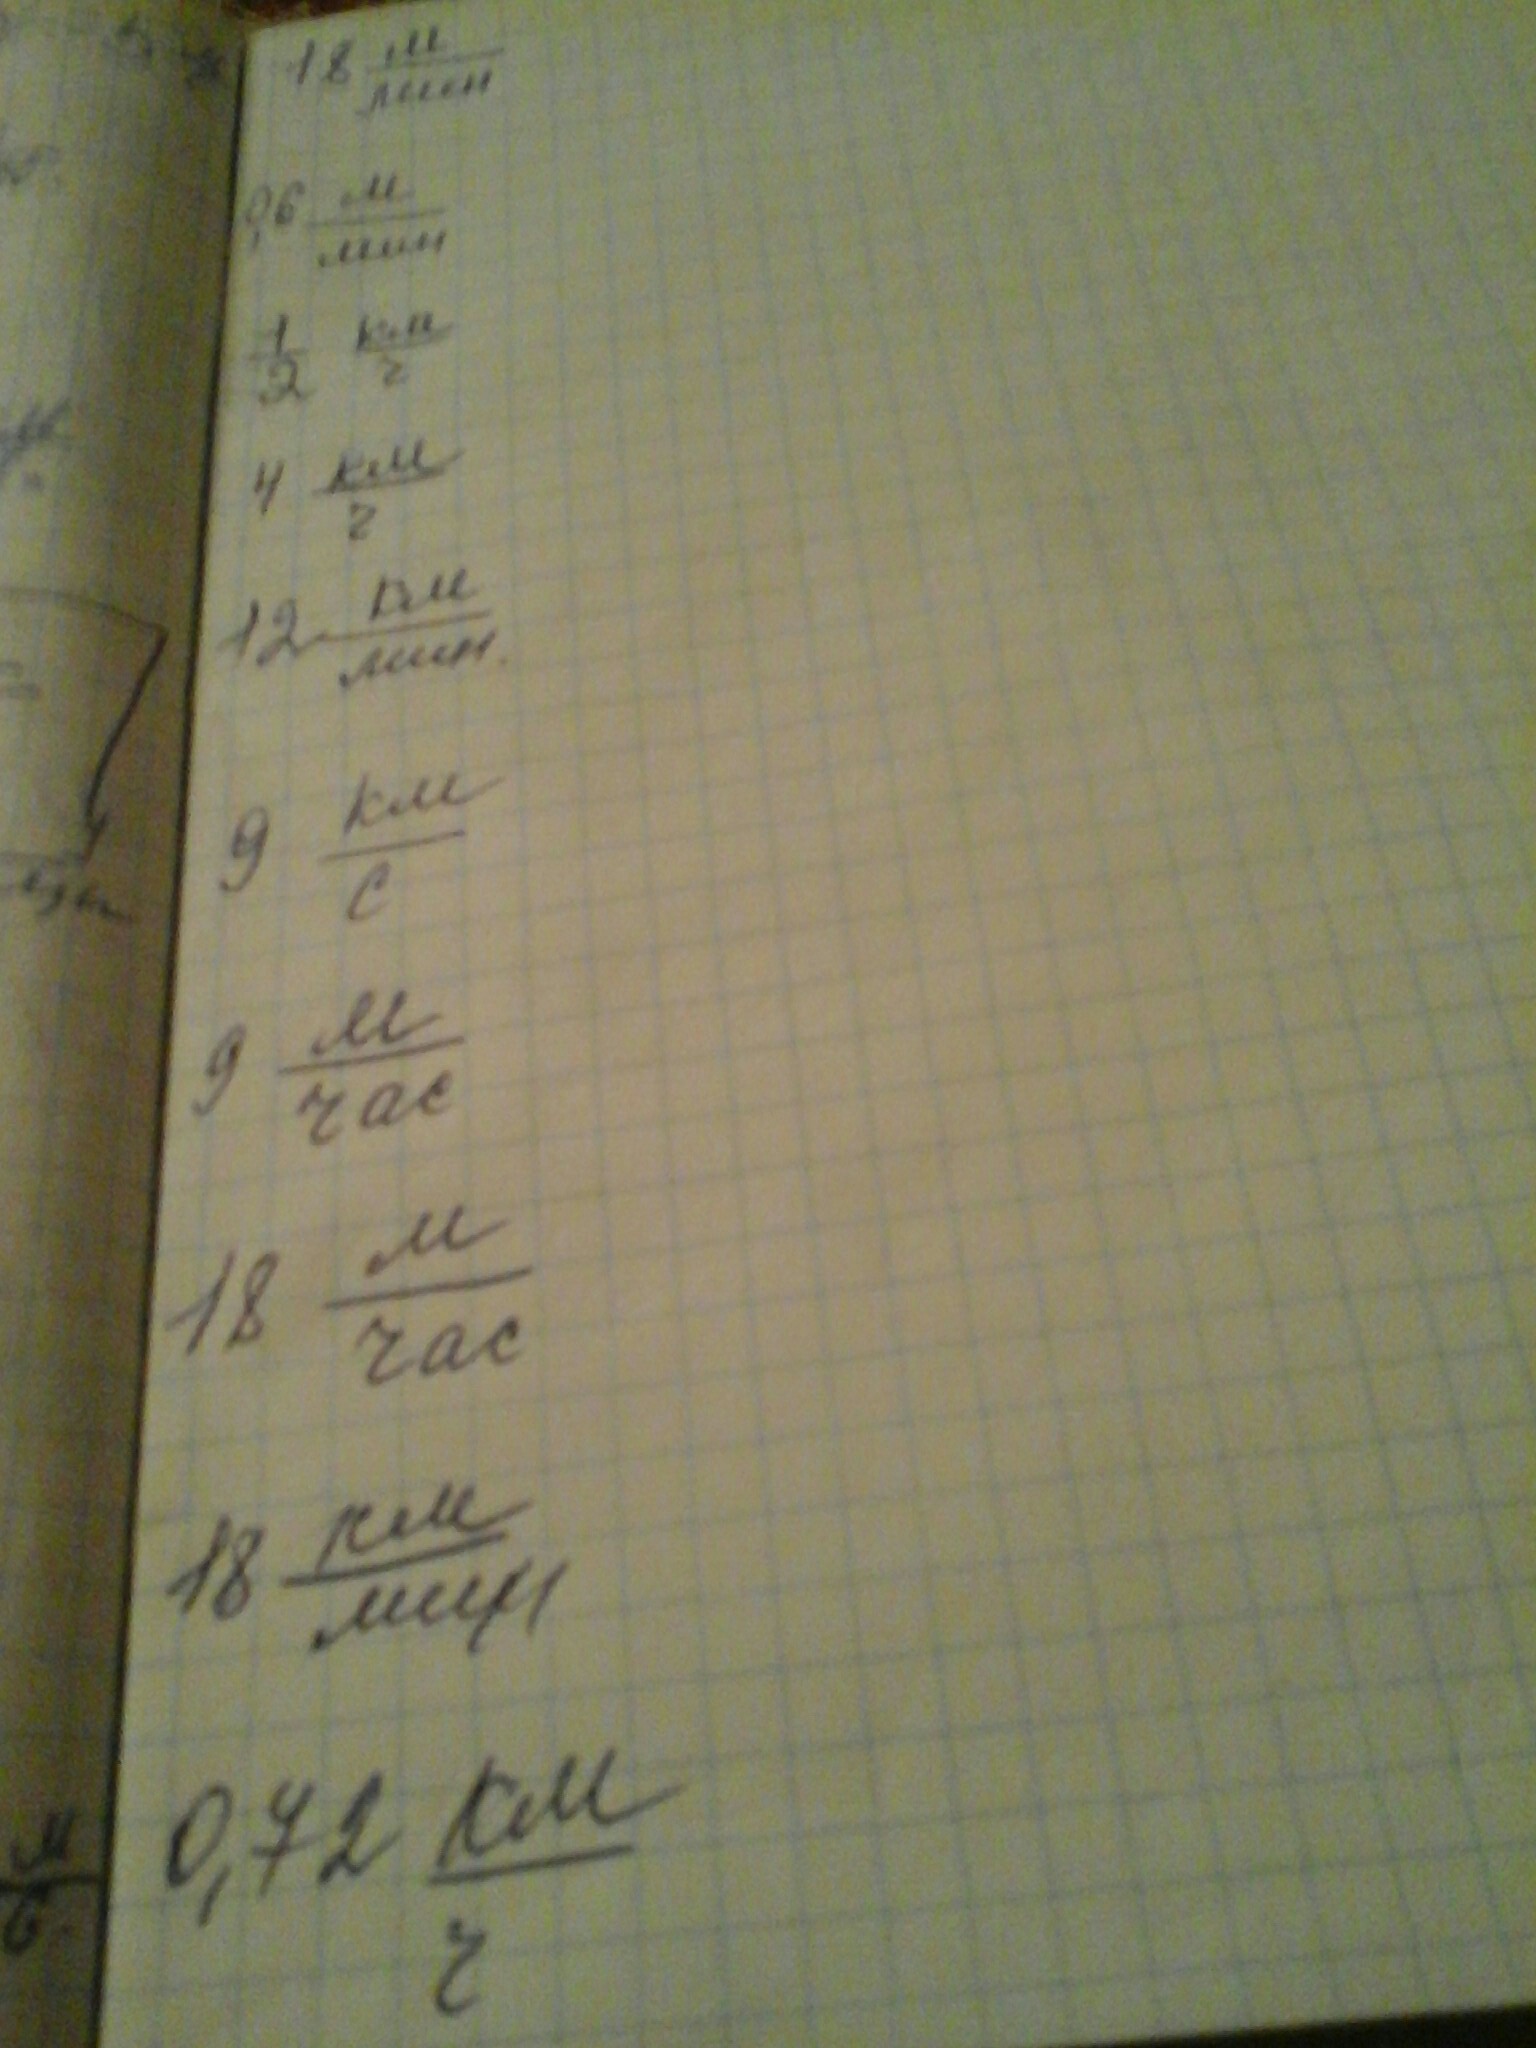 18 м/мин
0,6 м/мин
1/2 км/ч
4 км/ч
12 км/мин.
9 км/с
9 м/час
18 м/час
18 км/мин
0,72 км/ч
м/с.